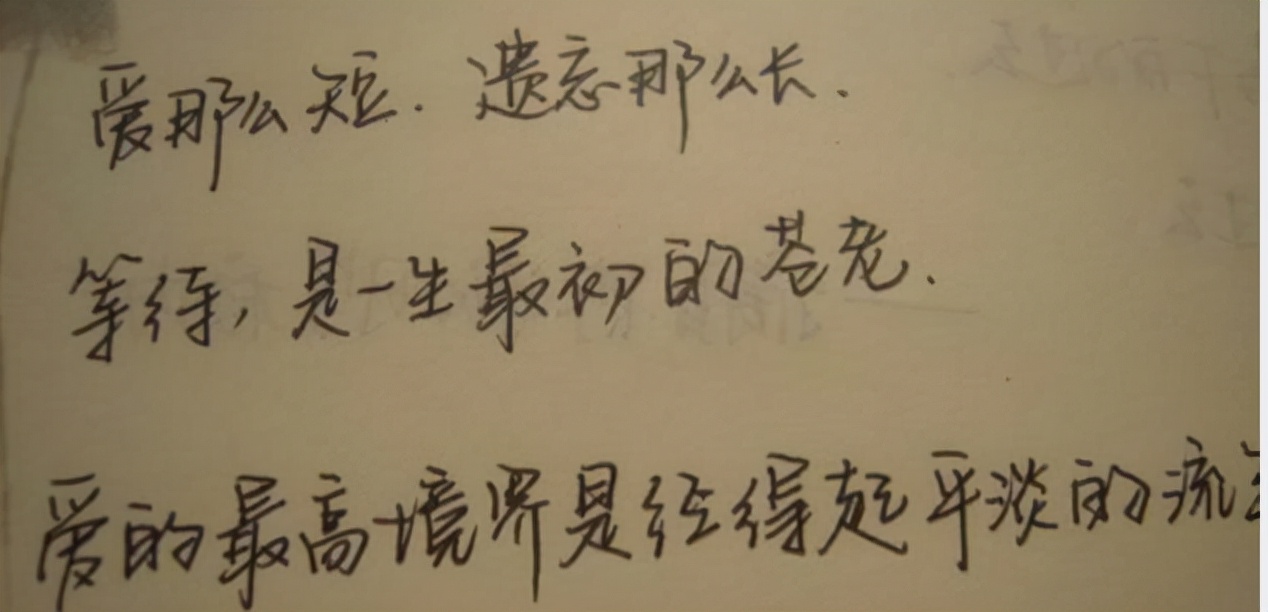 爱那么短．遗忘那么长．
等待，是一生最初的苍老．
爱的最高境界是经得起平淡的流